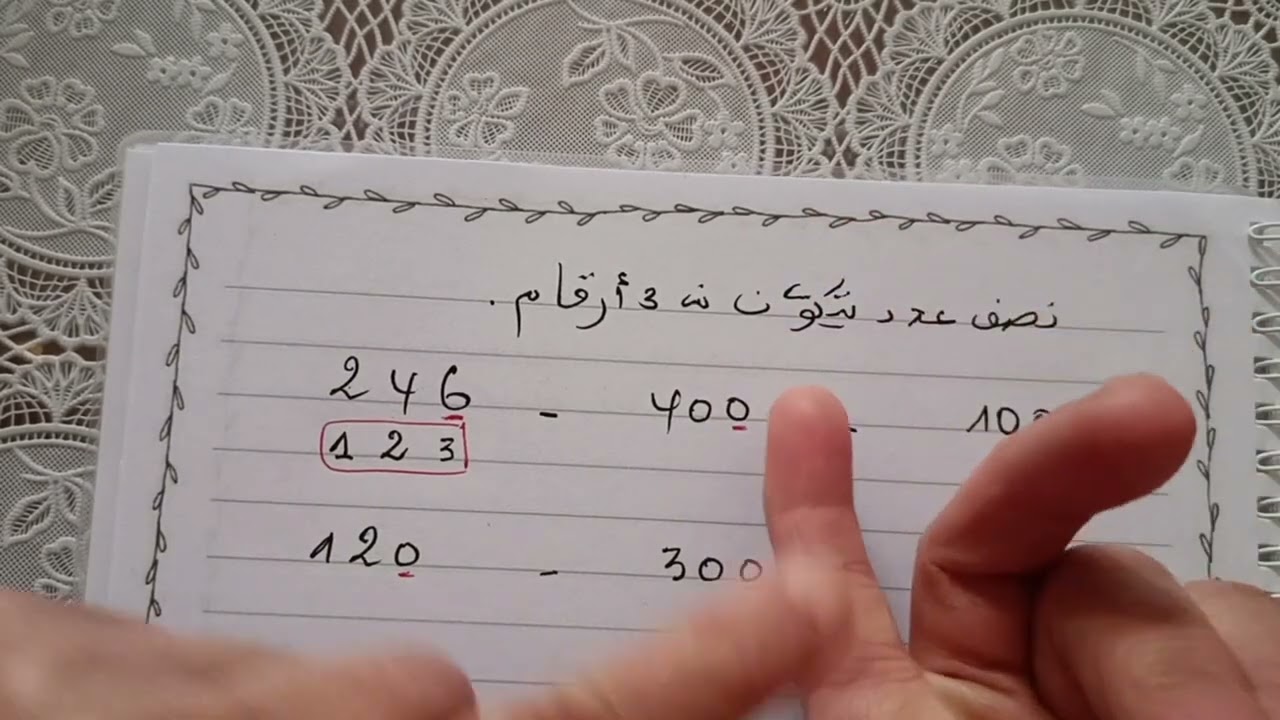 نصف عدد يتكون من 3 أرقام.
246 - 400 - 10
123
120 - 300